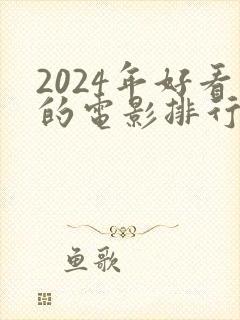 2024年好看
的电影排行
鱼歌